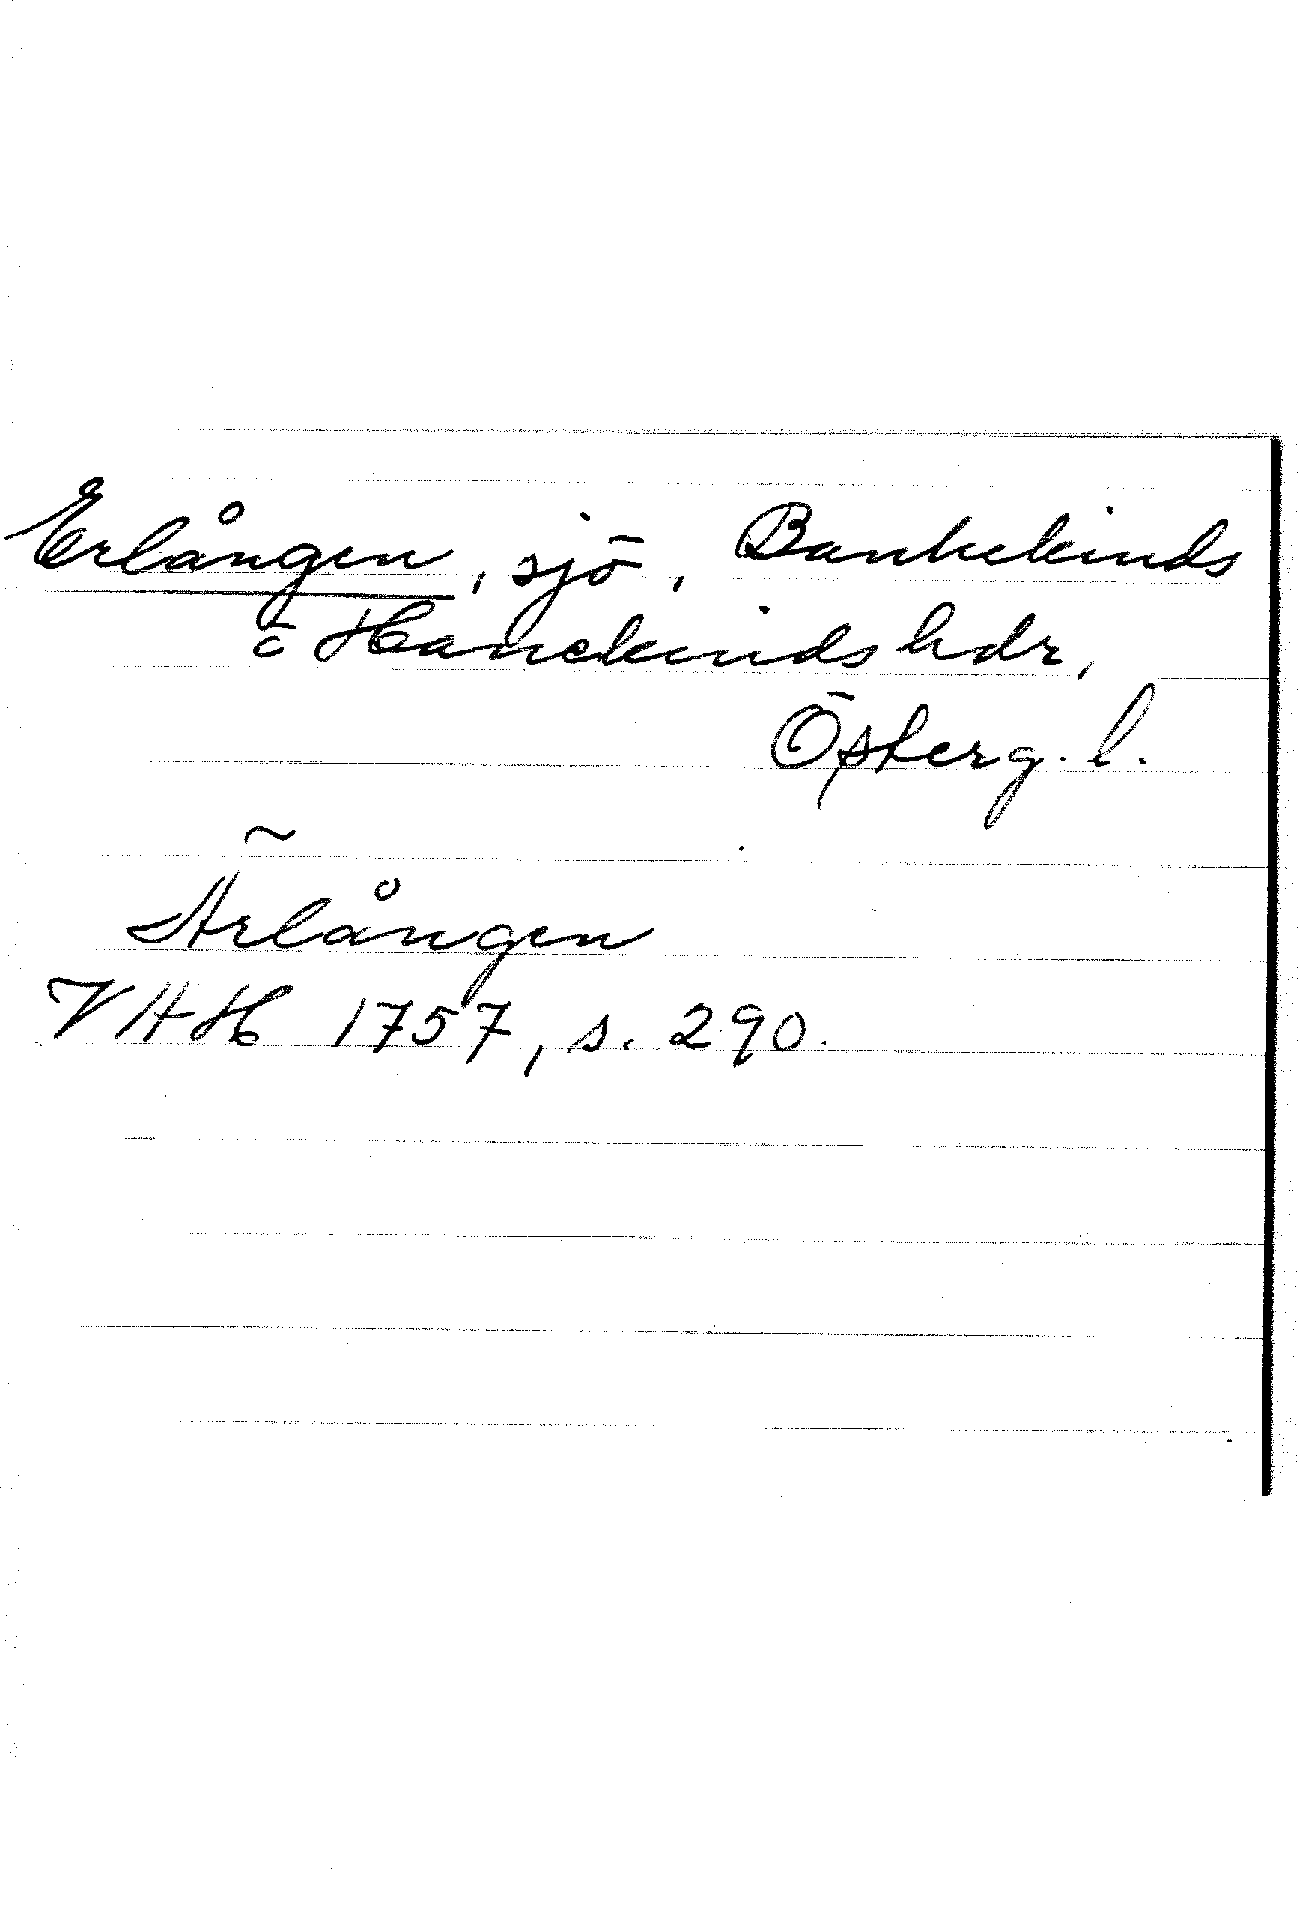 Erlången, sjö, Bankekinds
o Hanekinds hdr,
Österg. l.
Ärlången
VAH 1757, s. 290.